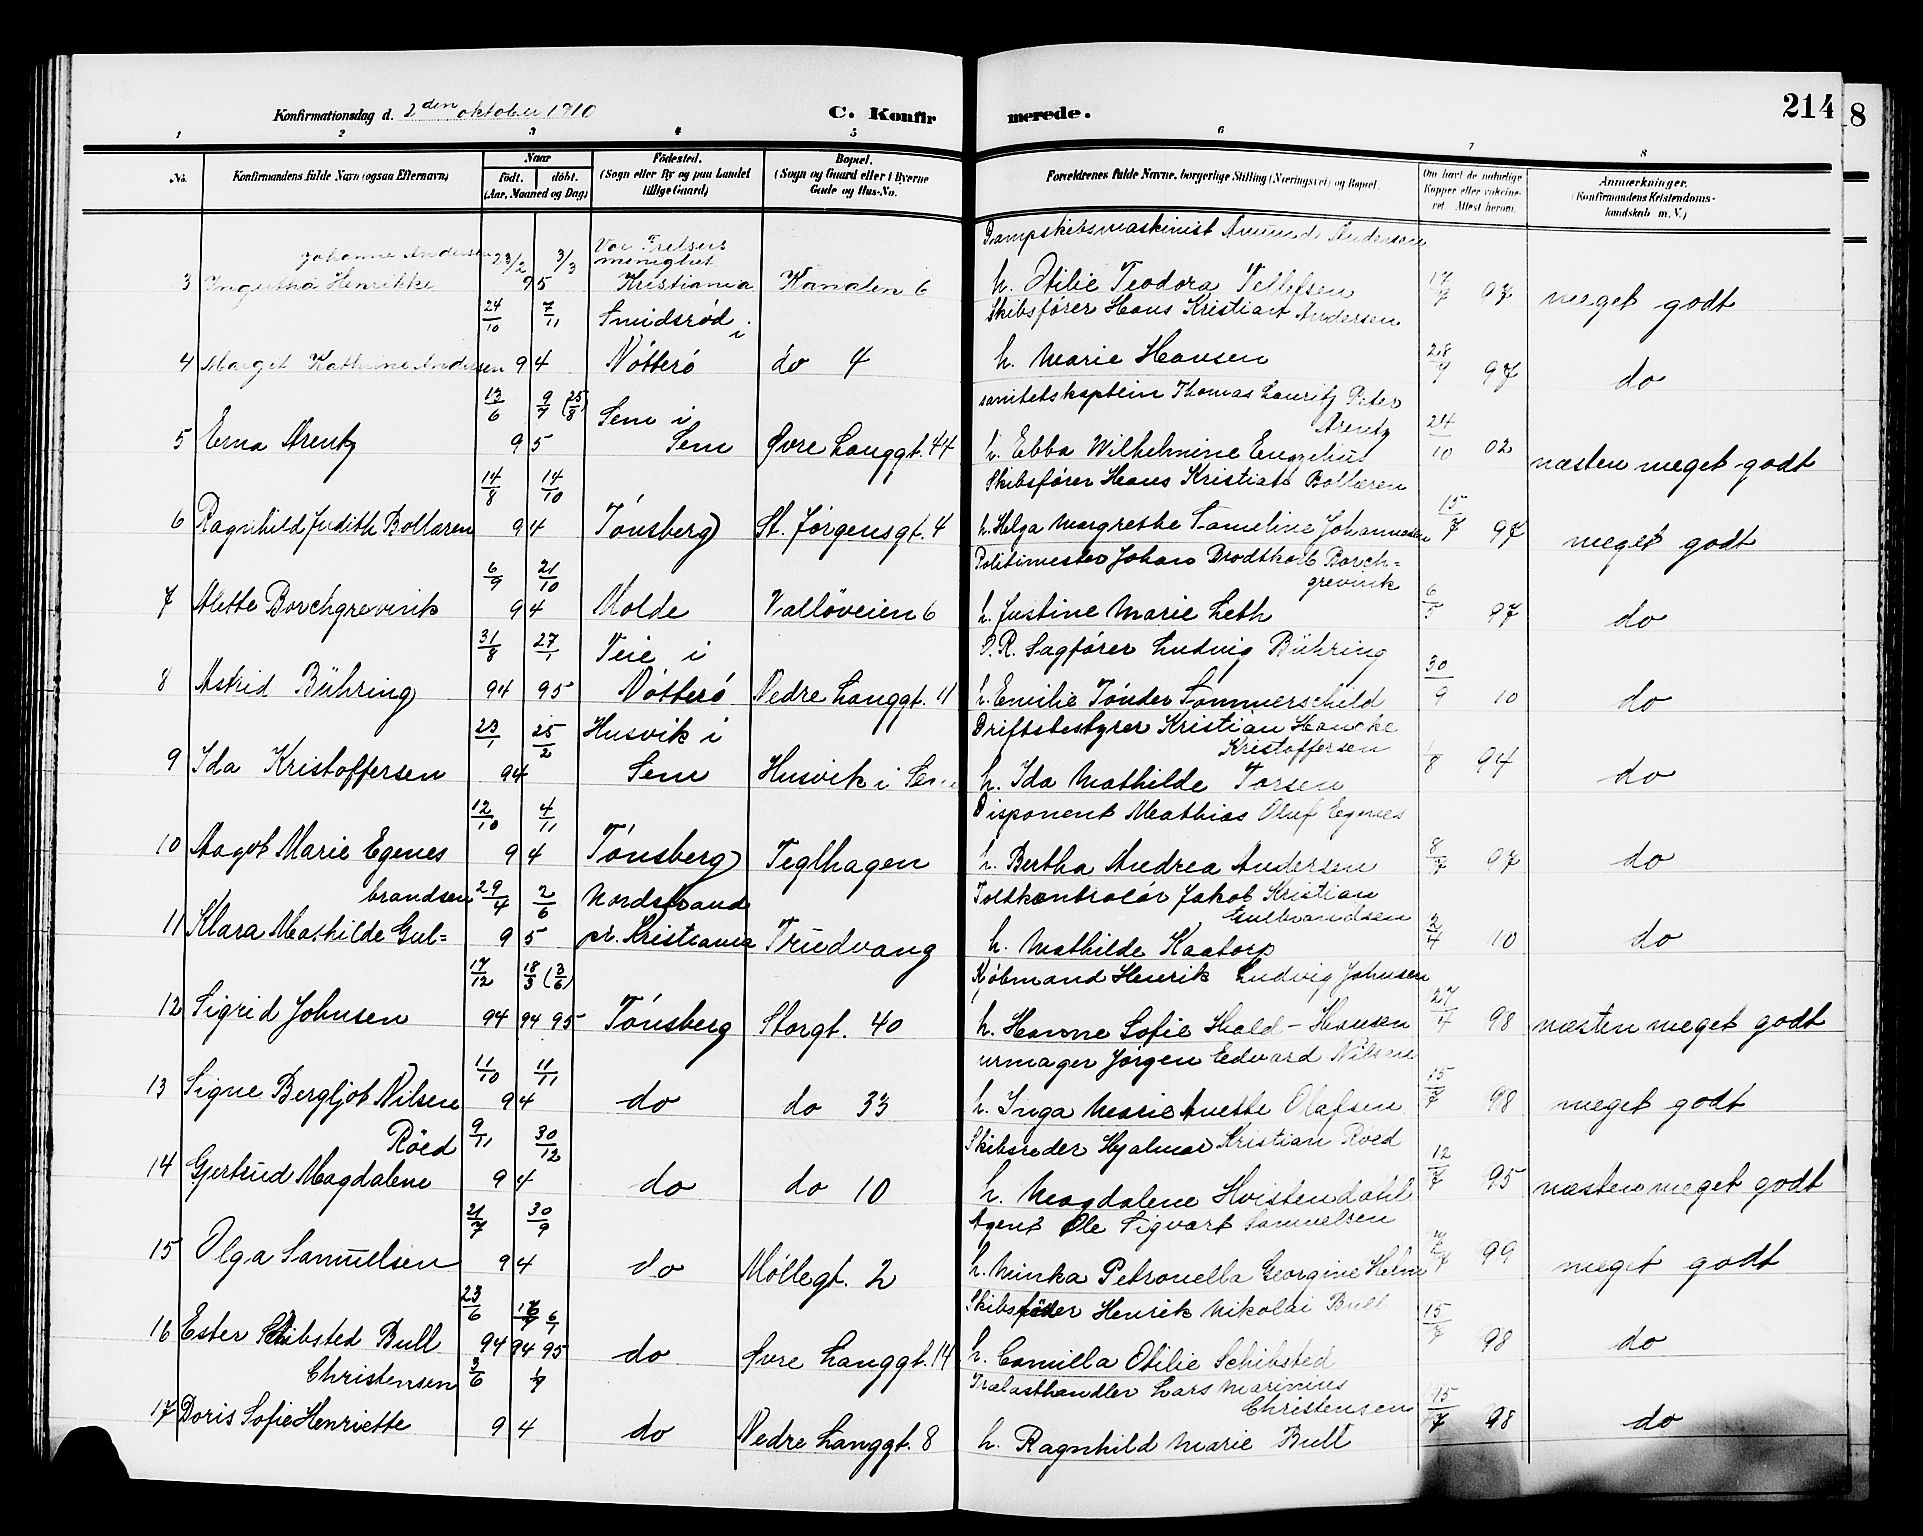 Konfirmationsdag d. 2den oktober 1910 C. Konfirmerede. 214 8
1 2 3 4 5 6 7 8
No. Konfirmandens fulde Navn (ogsaa Efternavn) Naar født. døbt. (Aar, Maaned og Dag) Fødested. (Sogn eller By og paa Landet tillige Gaard) Bopæl. (Sogn og Gaard eller i Byerne Gade og Hus-No. Forældrenes fulde Navne, borgerlige Stilling (Næringsvei) og Bopæl. Om havt de naturlige Kopper eller vakcineret Attest herom. Anmærkninger. (Konfirmandens Kristendomskundskab m. V.)
Dampskibsmaskinist Amund Andersen
Johanne Andersen 23/2 3/3 Vor Frelsers menighet
3 Ingertha Henrikke 95 Kristiania Kanalen 6 h. Otilie Teodora Tellefsen 17/7 97 meget godt
24/10 7/11 Smidsrød i Skibsfører Hans Kristian Andersen
4 Marget Kathrine Andersen 94 Nøtterø do 4 h. Marie Hansen 28/9 97 do
13/6 9/7 (25/8) Sem i sanitetskaptein Thomas Lauritz Peter Arentz
5 Erna Arentz 95 Sem Øvre Langgt. 44 h. Ebba Wilhelmine Engelhus 24/10 02 næsten meget godt
14/8 14/10 Skibsfører Hans Kristian Bollæren
6 Ragnhild Judith Bollæren 94 Tønsberg St. Jørgensgt. 4 h. Helga Margrethe Sameline Johannesen 15/7 97 meget godt
6/9 21/10 Politimester Johan Brodtkorb Borch=
grevink
7 Alette Borchgrevink 94 Molde Valløveien 6 h. Justine Marie Leth 97 do
31/8 27/1 Veie i O.R. Sagfører Ludvig Bühring
8 Astrid Bühring 94 95 Nøtterø Nedre Langgt. 11 h. Emilie Tønder Sommerschild 30/9 10 do
23/1 25/2 Husvik i Driftsbestyrer Kristian Hancke
Kristoffersen
9 Ida Kristoffersen 94 Sem Husvik i Sem h. Ida Mathilde Torsen 1/8 94 do
12/10 4/11 Disponent Mathias Oluf Egenes
10 Aagot Marie Egenes 94 Tønsberg Teglhagen h. Bertha Andrea Andersen 8/7 97 do
brandsen 29/4 2/6 Nordstrand Toldkontrolør Jakob Kristian
Gulbrandsen
11 Klara Mathilde Gul= 95 pr. Kristiania Truedvang h. Mathilde Kaatorp 2/4 10 do
17/12 18/3 (3/6) Kjøbmand Henrik Ludvig Johnsen
12 Sigrid Johnsen 94 94 95 Tønsberg Storgt. 40 h. Hanne Sofie Hald-Hansen 27/4 98 næsten meget godt
11/10 11/11 urmager Jørgen Edvard Nilsen
13 Signe Bergljot Nilsen 94 do do 33 h. Inga Marie Anette Olafsen 15/7 98 meget godt
Røed 9/11 30/12 Skibsreder Hjalmar Kristian Røed
14 Gjertrud Magdalene 94 do do 10 h. Magdalene Hvistendahl 12/7 95 næsten meget godt
21/7 30/9 Agent Ole Sigvart Samuelsen
15 Olga Samuelsen 94 do Møllegt. 2 h. Minka Petronella Georgine Helm 99 meget godt
23/6 6/1 Henrik Nikolai Bull
16 Ester Schibsted Bull 94 94 95 do Øvre Langgt. 14 h. Camilla Otilie Schibsted 15/7 98 do
Christensen 3/6 Trælasthandler Lars Marinius
Christensen
17 Doris Sofie Henriette 94 do Nedre Langgt. 8 h. Ragnhild Marie Bull 15/7 98 do